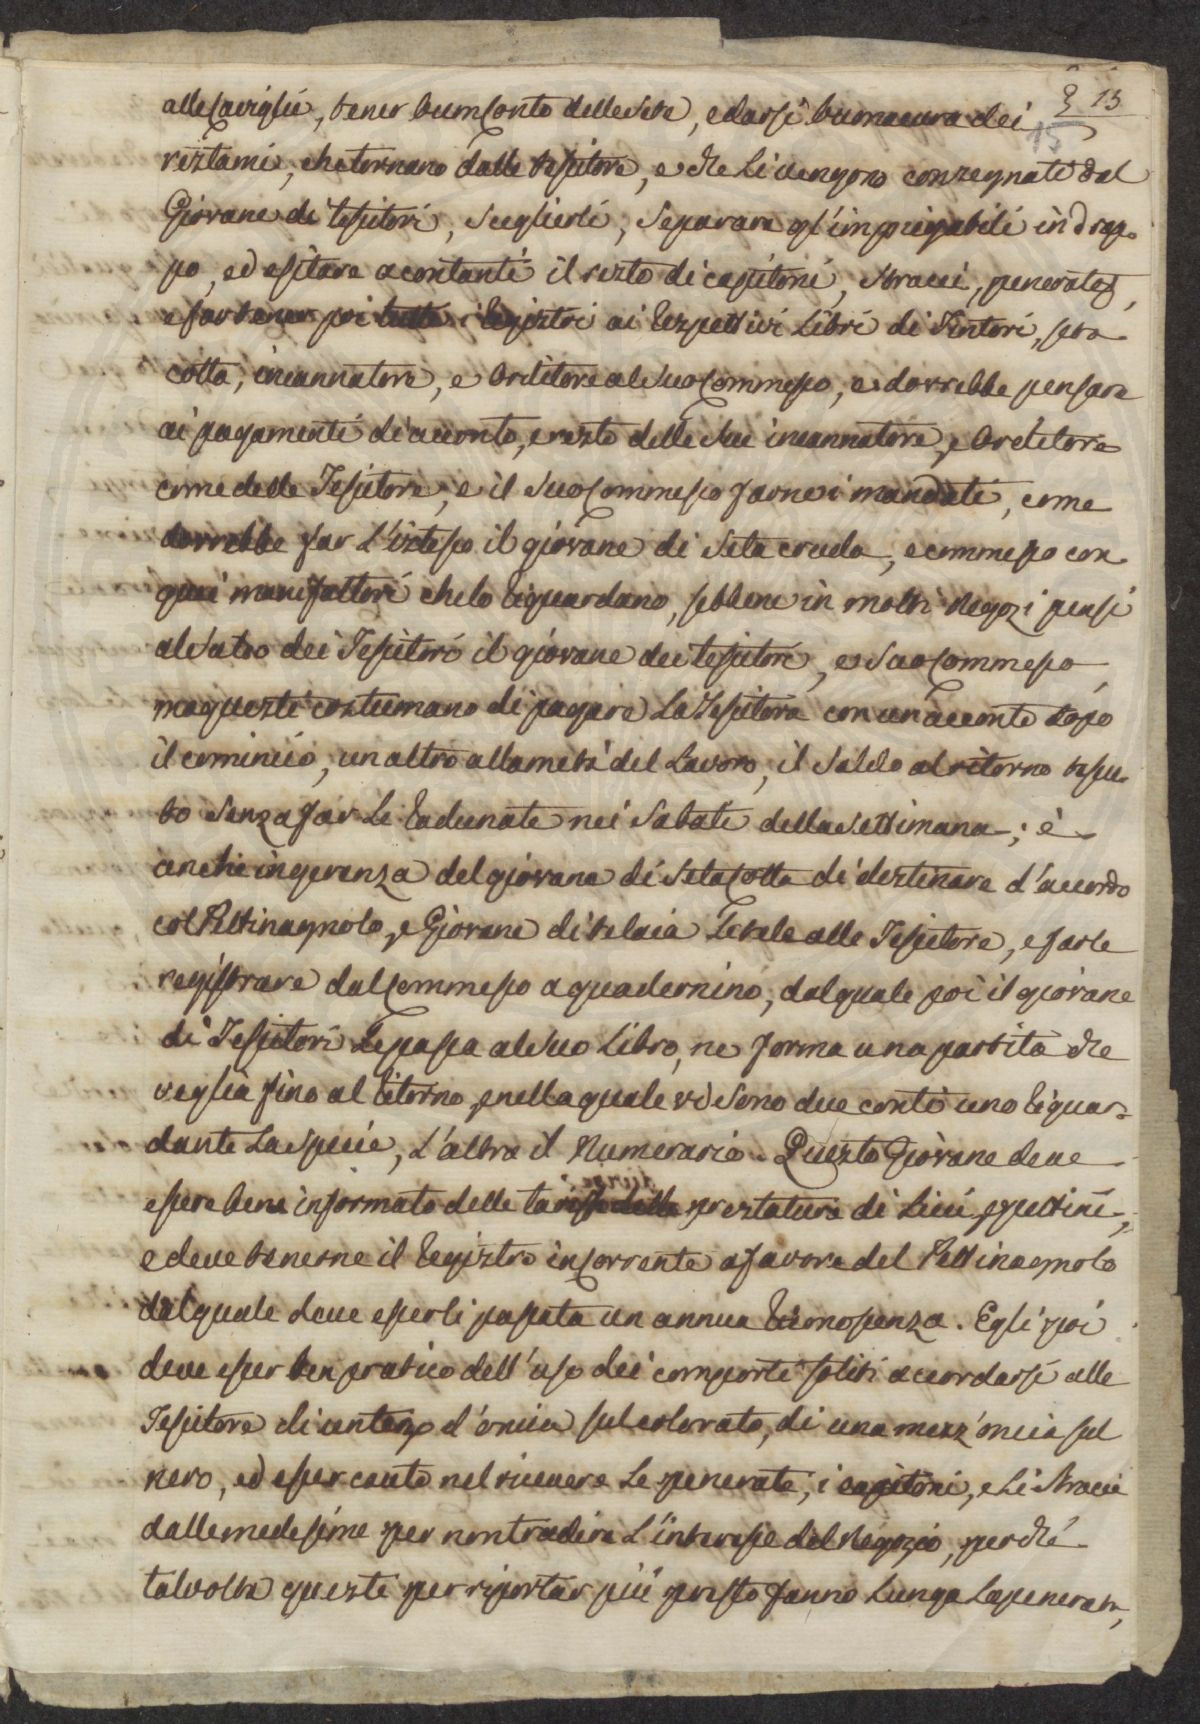 15
15
alle Caviglie, tener buon Conto delle Sete, e darsi buona cura dei
restami, che tornano dalle tessitore, e che li vengono consegnati dal
Giovane di Tessitori, Scieglierli, Separare gl'impiegabili in drap-
po, ed esitare a contanti il resto di capitoni, Stracci, penerate,
e far tener poi tutti i Registri ai Respettivi Libri di Tintori, seta
cotta, incannatore, e Orditore al Suo Commesso, e dovrebbe pensare
ai pagamenti di acconto, e resto delle Sue incannatore, e Orditore
come delle Tessitore, e il Suo Commesso farne i mandati, come
dovrebbe far L'istesso il giovane di Seta cruda, e commesso con
quei manifattori che lo Riguardano, sebbene in molti Negozi pensi
al Sabato dei Tessitori il giovane dei tessitori, e Suo Commesso,
ma questi costumano di pagare La Tessitora con un acconto dopo
il cominciò, un altro alla metà del Lavoro, il Saldo al ritorno tessu-
to Senza far Le Radunate nei Sabati della Settimana; è
anche ingerenza del giovane di Seta Cotta di destinare d'accordo
col Pettinagnolo, e Giovane di telaia Le tele alle Tessitore, e farle
registrare dal Commesso a quadernino, dal quale poi il giovane
di Tessitori Le passa al Suo Libro, ne forma una partita che
veglia fino al Ritorno, e nella quale vi Sono due conti uno Riguar-
dante La Specie, L'altro il Numerario. Questo Giovane deve
essere bene informato delle tariffe delle prestature di Licci, e pettini,
e deve tenerne il Registro in Corrente a favore del Pettinagnolo
dal quale deve esserli passata un annua Ricmopenza. Egli poi
deve esser ben pratico dell'uso dei comporti soliti accordarsi alle
Tessitore di un terzo d'oncia sul colorato, di una mezz'oncia sul
nero, ed esser cauto nel ricevere Le penerate, i capitoni, e Li Stracci
dalle medesime per non tradire L'interesse del Negozio, perché
talvolta queste per riportar più presto fanno Lunga La penerata,